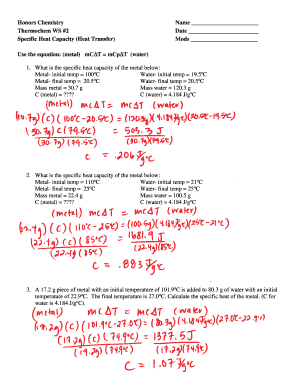 Honors Chemistry Name
Thermochem WS #2 Date
Specific Heat Capacity (Heat Transfer) Mods
Use the equation: (metal) mCΔT = mCpΔT (water)
1. What is the specific heat capacity of the metal below:
Metal- initial temp = 100°C Water- initial temp = 19.5°C
Metal- final temp = 20.5°C Water- final temp = 20.5°C
Mass metal = 30.7 g Mass water = 120.3 g
C (metal) = ???? C (water) = 4.184 J/g°C
(metal) mcΔT = mcΔT (water)
(30.7g)(c)(100°C-20.5°C) = (120.3g)(4.184J/g°C)(20.5°C-19.5°C)
(30.7g)(c)(79.5°C) = 503.3 J
(30.7g)(79.5°C) (30.7g)(79.5°C)
c = .206 J/g°C
2. What is the specific heat capacity of the metal below:
Metal- initial temp = 110°C Water- initial temp = 21°C
Metal- final temp = 25°C Water- final temp = 25°C
Mass metal = 22.4 g Mass water = 100.5 g
C (metal) = ???? C (water) = 4.184 J/g°C
(metal) mcΔT = mcΔT (water)
(22.4g)(c)(110°C-25°C) = (100.5g)(4.184J/g°C)(25°C-21°C)
(22.4g)(c)(85°C) = 1681.9 J
(22.4g)(85°C) (22.4g)(85°C)
C = .883 J/g°C
3. A 17.2 g piece of metal with an initial temperature of 101.9°C is added to 80.3 g of water with an initial
temperature of 22.9°C. The final temperature is 27.0°C. Calculate the specific heat of the metal. (C for
water is 4.184 J/g°C)
(metal) mcΔT = mcΔT (water)
(17.2g)(c)(101.9°C-27.0°C) = (80.3g)(4.184J/g°C)(27.0°C-22.9°C)
(17.2g)(c)(74.9°C) = 1377.5 J
(17.2g)(74.9°C) (17.2g)(74.9°C)
C = 1.07 J/g°C